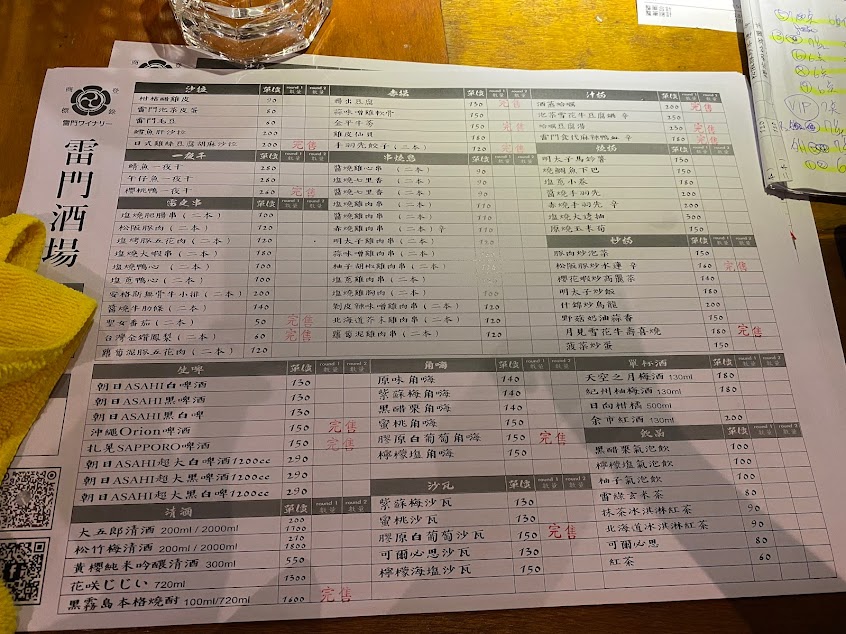 商 登
標 錄
雷門ワイナリー
雷門酒場
沙拉 單位 round 1 數量 round 2 數量
柑橘醋雞皮 90
雷門泡菜皮蛋 80
雷門毛豆 60
鱈魚肝沙拉 200
日式雞絲豆腐胡麻沙拉 200 完售
一夜干 單位
鯖魚一夜干 280
午仔魚一夜干 280
櫻桃鴨一夜干 260 完售
單位 round 1 數量 round 2 數量
塩燒肥腸串（二本） 100
松阪豚肉（二本） 120
塩烤豚五花肉（二本） 120
塩燒大蝦串（二本） 180
塩燒鴨心（二本） 100
塩蔥鴨心（二本） 100
安格斯無骨牛小排（二本） 200
醬燒牛肋條（二本） 140
聖女番茄（二本） 50 完售
台灣金鑽鳳梨（二本） 60 完售
蘿蔔泥豚五花肉（二本） 120
單位 round 1 round 2
尋出豆腐 130 完售
蒜味噌雞軟骨 150
金平牛蒡 150 完售
雞皮仙貝 180
手羽先餃子（二本） 120 完售
串燒鳥 單位
醬燒雞心串（二本） 90
塩燒七里香（二本） 90
醬燒七里香（二本） 90
塩燒雞肉串（二本） 110
醬燒雞肉串（二本） 110
赤燒雞肉串（二本）辛 110
明太子雞肉串（二本） 130
蒜味噌雞肉串（二本）
柚子胡椒雞肉串（二本）
塩蔥雞肉串（二本）
塩燒雞胸肉（二本） 100
剝皮辣味噌雞肉串（二本） 120
北海道芥末雞肉串（二本） 120
蘿蔔泥雞肉串（二本） 120
單位 round 1 round 2
酒蒸蛤蠣 200 完售
泡菜雪花牛豆腐鍋 辛 250
蛤蠣豆腐湯 150 完售
雷門食代麻辣鴨血 辛 180 完售
燒物 單位
明太子馬鈴薯 150
炭燒鯛魚下巴 150
塩蔥小卷 180
醬燒手羽先 200
赤燒手羽先 辛 200
塩燒大透抽 300
原燒玉米筍 150
炒物 單位
豚肉炒泡菜 150
松阪豚炒水蓮 辛 160 完售
櫻花蝦炒高麗菜 140
明太子炒飯 180
什錦炒烏龍 200
野菇奶油蒜香 150
月見雪花牛壽喜燒 180 完售
菠菜炒蛋 150
生啤 單位 round 1 數量 round 2 數量
朝日ASAHI白啤酒 130
朝日ASAHI黑啤酒 130
朝日ASAHI黑白啤 130
沖繩Orion啤酒 150 完售
北見SAPPORO啤酒 150 完售
朝日ASAHI超大白啤酒1200cc 290
朝日ASAHI超大黑啤酒1200cc 290
朝日ASAHI超大黑白啤酒1200cc 290
清酒 單位 round 1 數量 round 2 數量
大五郎清酒 200ml / 2000ml 200 1700
松竹梅清酒 200ml / 2000ml 210 1800
黃櫻純米吟釀清酒 300ml 550
花咲じじい 720ml 1300
黑霧島本格燒酎 100ml/720ml 1600 完售
角嗨 單位 round 1 數量 round 2 數量
原味角嗨 140
紫蘇梅角嗨 140
黑醋栗角嗨 140
蜜桃角嗨 150
膠原白葡萄角嗨 150 完售
檸檬塩角嗨 150
沙瓦 單位 round 1 數量 round 2 數量
紫蘇梅沙瓦 130
蜜桃沙瓦 130
膠原白葡萄沙瓦 150 完售
可爾必思沙瓦 130
檸檬海塩沙瓦 150
單杯酒 單位 round 1 數量 round 2 數量
天空之月梅酒 130ml 180
紀州柚梅酒 130ml 180
日向柑橘 500ml
余市紅酒 130ml 200
飲品 單位 round 1 數量 round 2 數量
黑醋栗氣泡飲 100
檸檬塩氣泡飲 100
柚子氣泡飲 100
雷條玄米茶 80
抹茶冰淇淋紅茶 90
北海道冰淇淋紅茶 90
可爾必思 80
紅茶 60
VIP